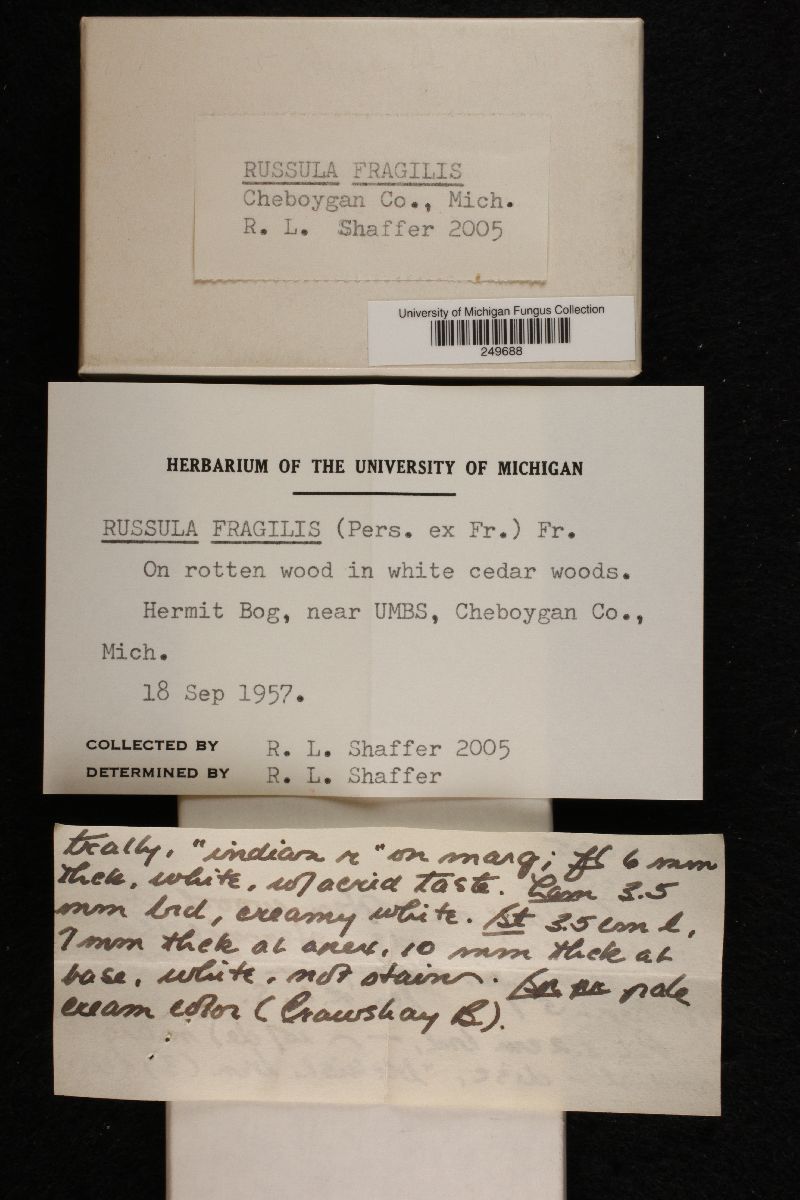 RUSSULA FRAGILIS
Cheboygan Co., Mich.
R. L. Shaffer 2005
University of Michigan Fungus Collection
249688
HERBARIUM OF THE UNIVERSITY OF MICHIGAN
RUSSULA FRAGILIS (Pers. ex Fr.) Fr.
On rotten wood in white cedar woods.
Hermit Bog, near UMBS, Cheboygan Co.,
Mich.
18 Sep 1957.
COLLECTED BY R. L. Shaffer 2005
DETERMINED BY R. L. Shaffer
trally, "indian r" on marg; fl 6 mm
thck, white, w/acrid taste. Lam 3.5
mm brd, creamy white. St 3.5 cm l,
7 mm thck at apex, 10 mm thck at
base, white, not stain. Sp pr pale
cream color (Crawshay B).